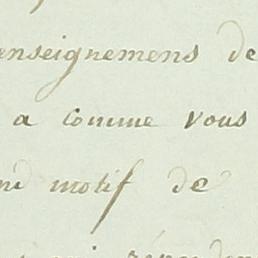 enseignemens de
a comme vous
motif de